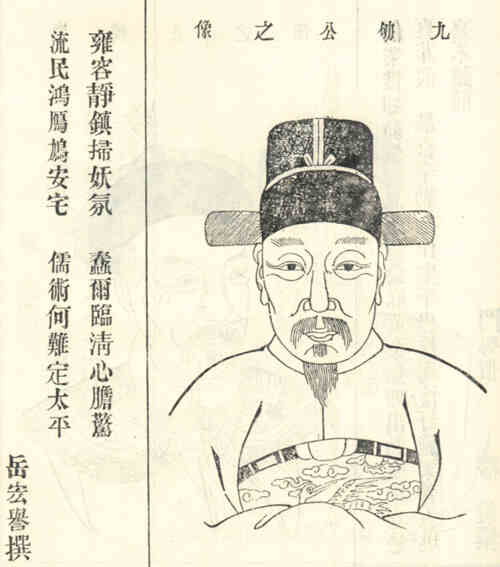 九公之像
雍容靜鎮掃妖氛 蠢爾臨清心膽驚
流民鴻鴈鳩安宅 儒術何難定太平
岳宏譽撰